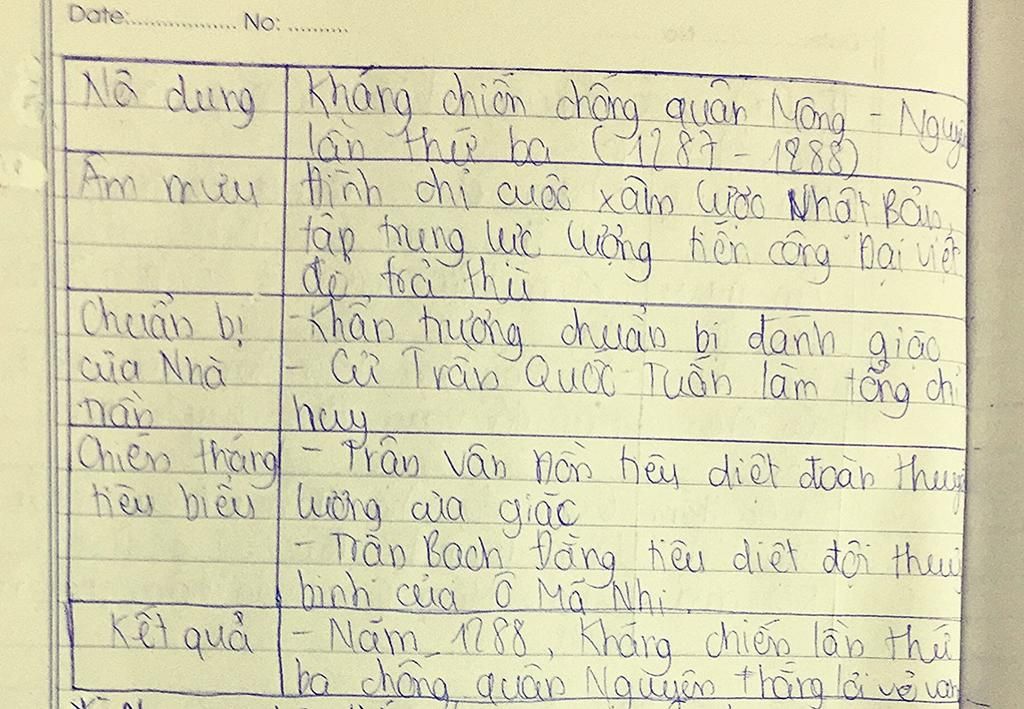 Date:................. No: ..........
Nô dung | Kháng chiến chống quân Mông - Nguyê
lần thứ ba (1287 - 1288)
Âm mưu | Đình chỉ cuộc xâm lược Nhật Bản,
tập trung lực lượng tiến công Đại việt
để trả thù
Chuẩn bị | - Khẩn trương chuẩn bị đánh giặc
của Nhà | - Cử Trần Quốc Tuấn làm tổng chỉ
trần | huy
Chiến thắng | - Trận Vân Đồn tiêu diệt đoàn thuyề
tiêu biểu | lương của giặc
- Trận Bạch Đằng tiêu diệt đội thuỷ
binh của Ô Mã Nhi.
Kết quả | - Năm 1288, Kháng chiến lần thứ
ba chống quân Nguyên thắng lợi vẻ van